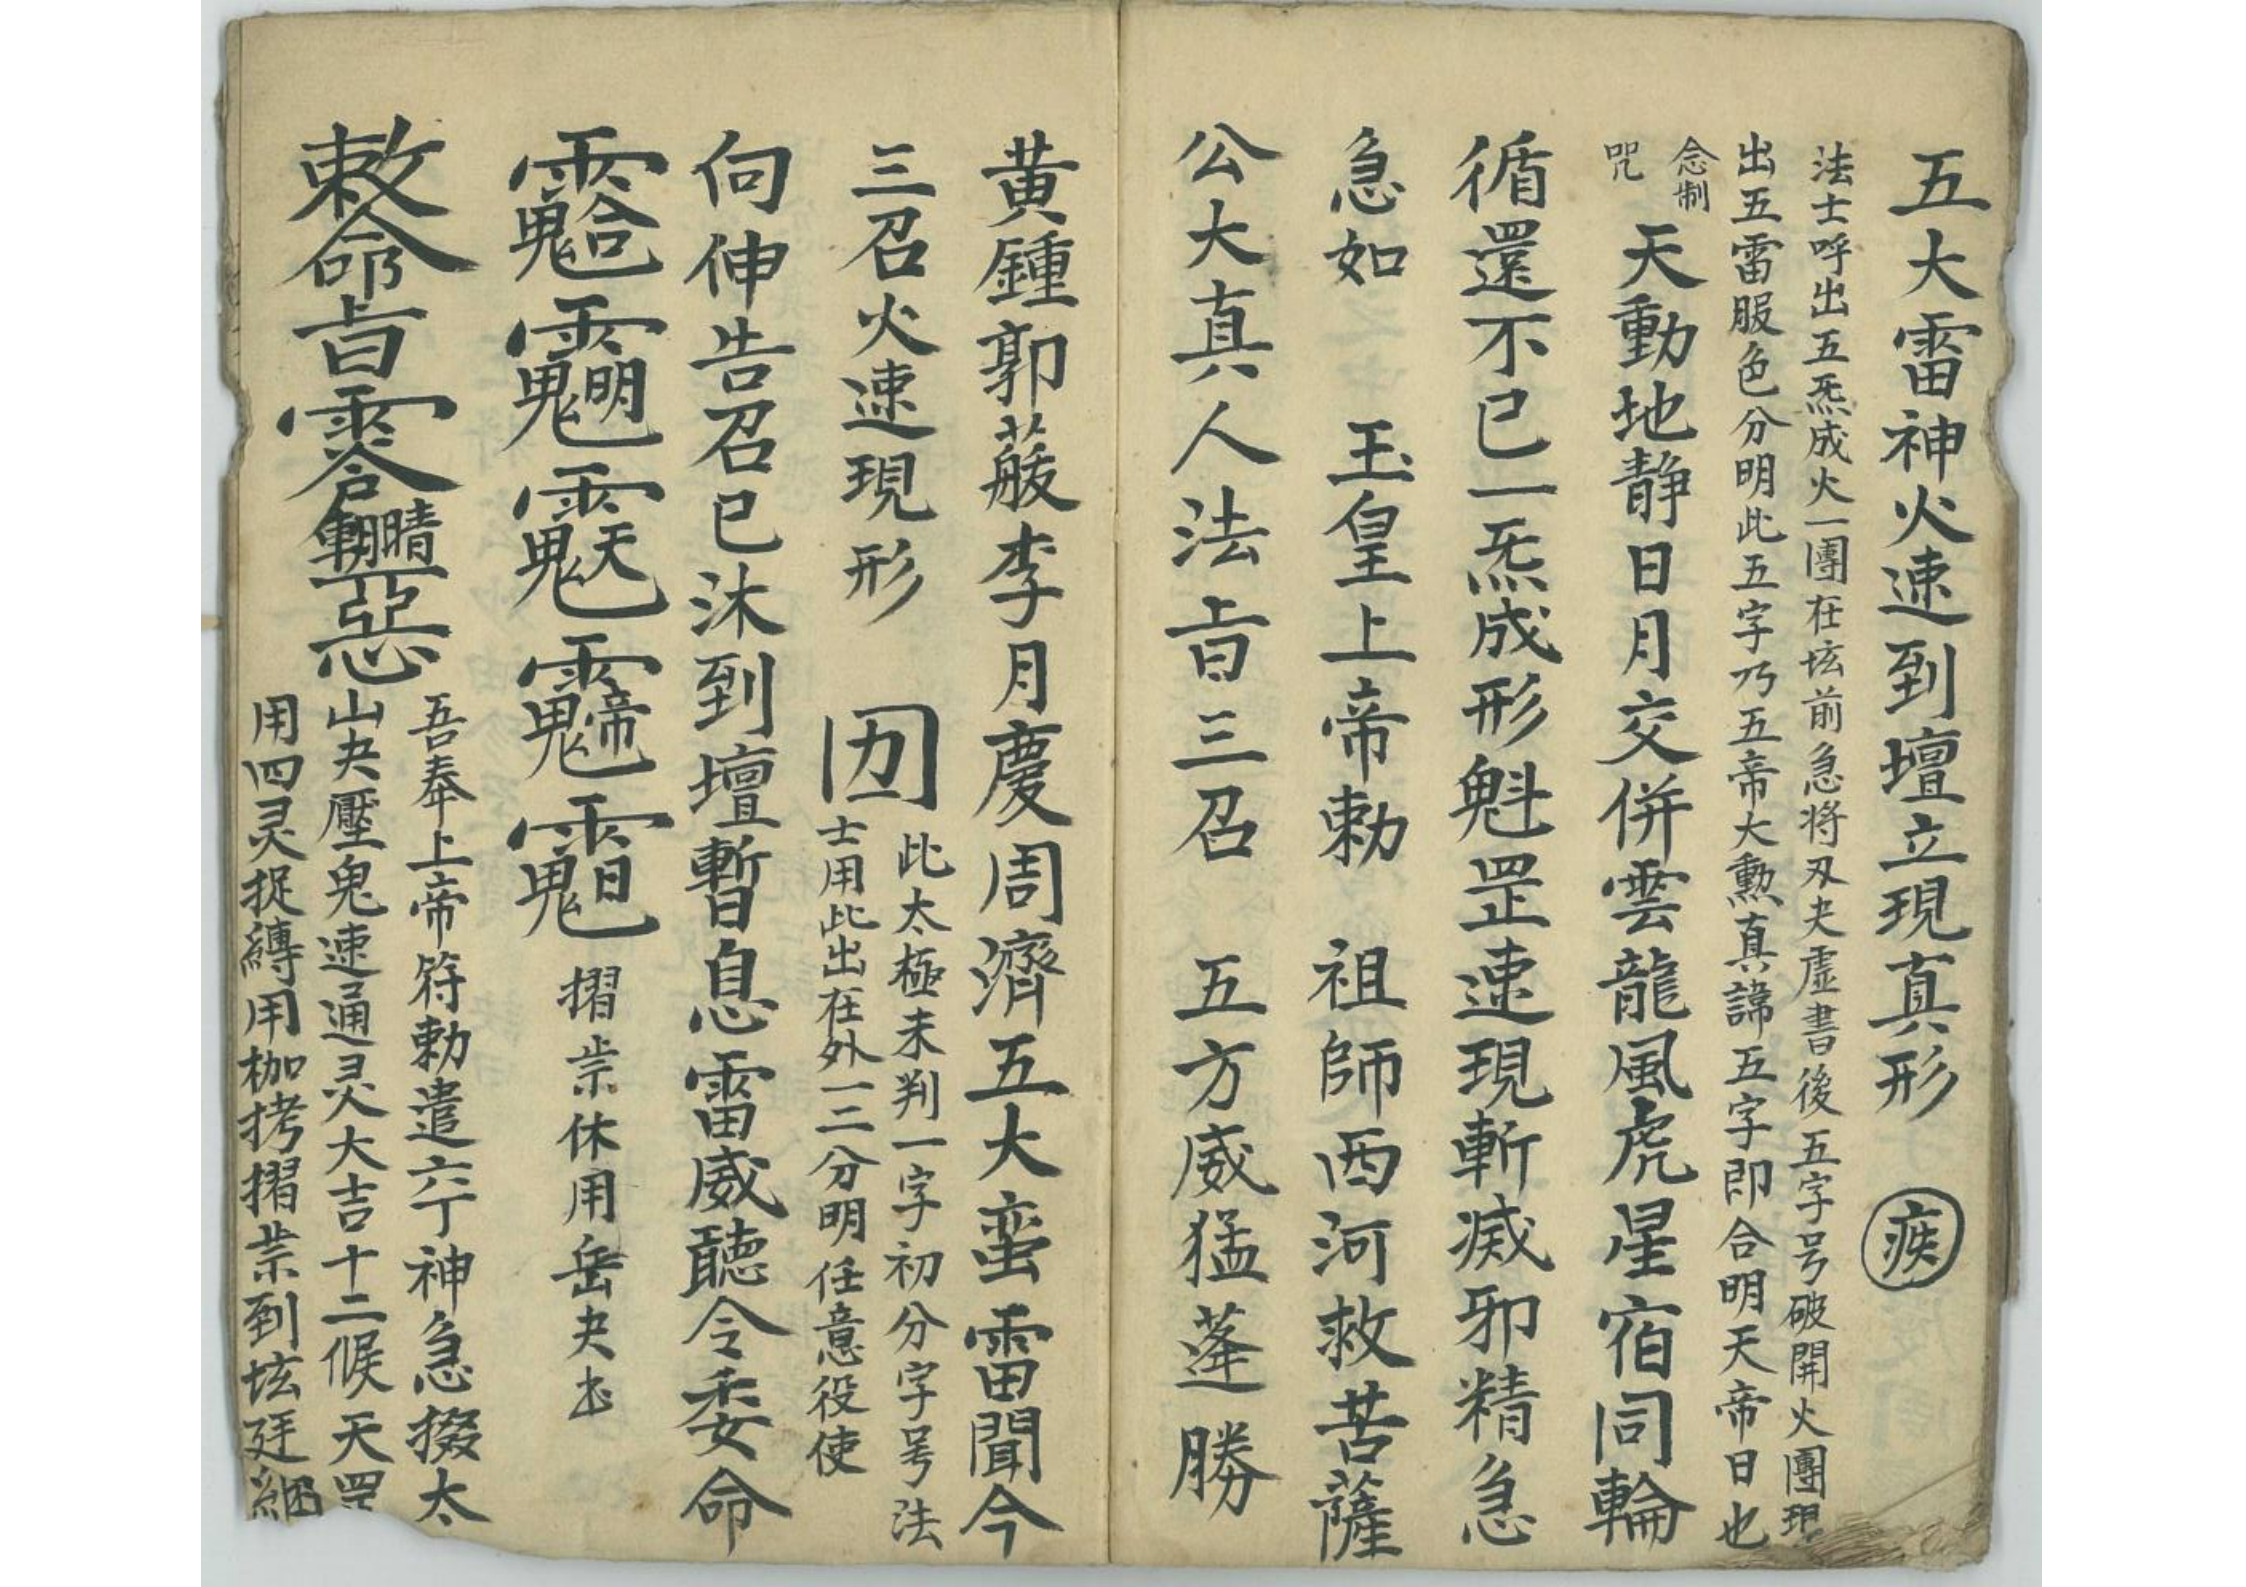 五大雷神火速到壇立現真形 疾
法士呼出五炁成火一團在坛前急将刄夬虛書後五字号破開火團現
出五雷服色分明此五字乃五帝大勲真諱五字即合明天帝日也
念制
咒
天動地静日月交併雲龍風虎星宿同輪
循還不已一炁成形魁罡速現斬滅邪精急
急如 玉皇上帝勅 祖師西河救苦薩
公大真人法旨三召 五方威猛蓬勝
黄鍾郭蕿李月慶周濟五大蛮雷聞今
三召火速現形
此太極未判一字初分字号法
士用此出在外一二分明任意役使
向伸告召已沐到壇暫息雷威聽令委命
摺祟休用岳夬
敕命旨
惡
吾奉上帝符勅遣六丁神急掇太
山夬壓鬼速通灵大吉十二候天罡
用四灵捉縛用枷拷摺祟到坛廷綑